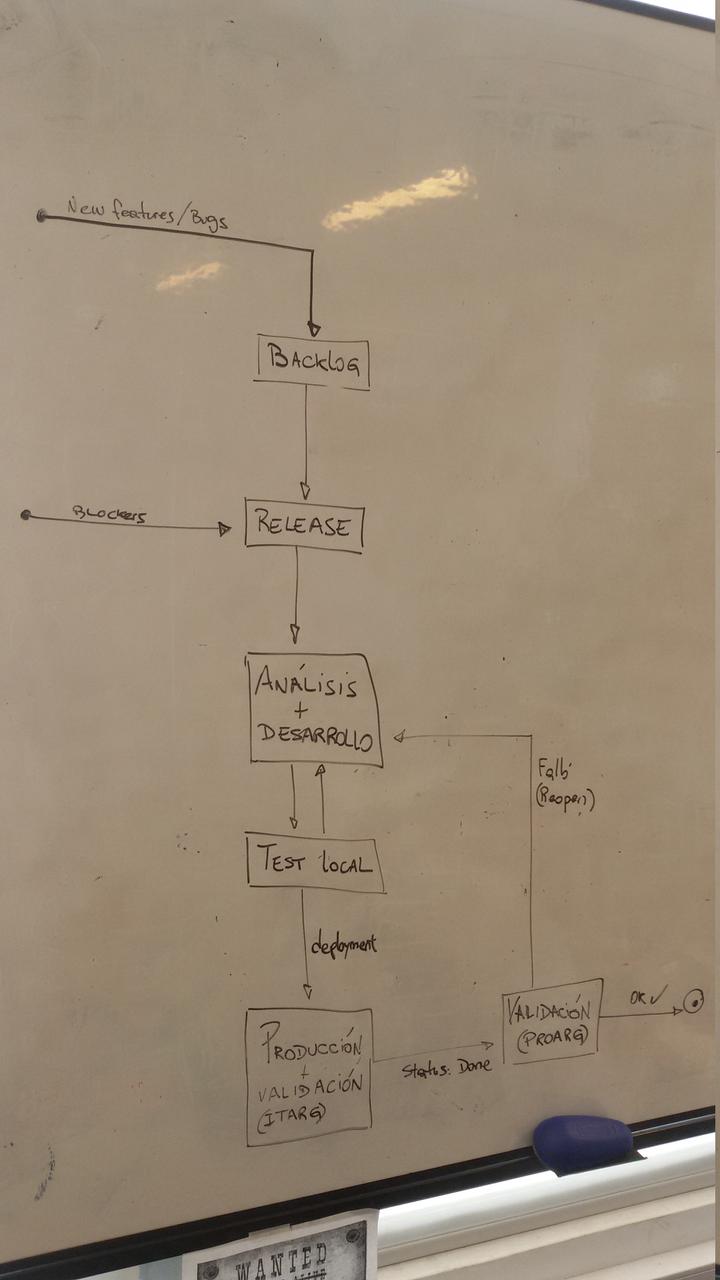 New features/Bugs
BACKLOG
BLOCKERS
RELEASE
ANÁLISIS
+
DESARROLLO
Falló
(Reopen)
TEST LOCAL
deployment
PRODUCCIÓN
+
VALIDACIÓN
(ITARG)
Status: Done
VALIDACIÓN
(PROARG)
OK ✓
WANTED